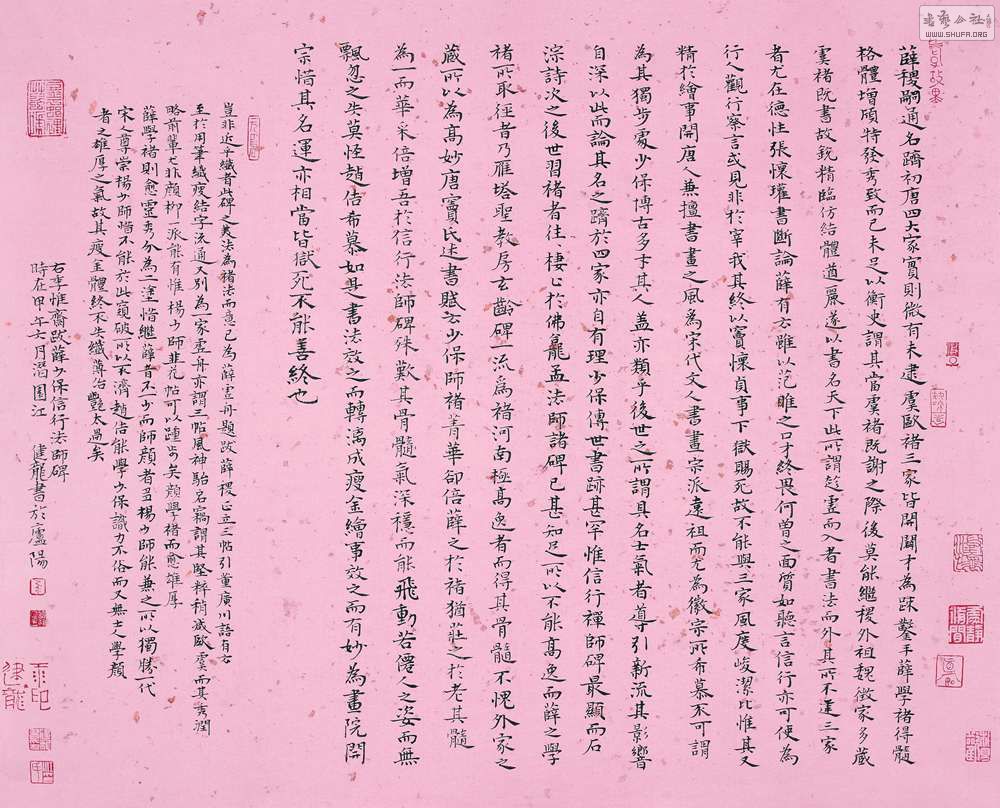 薛稷嗣通名躋初唐四大家實則微有未逮虞歐褚三家皆開闢才為疎鑿手薛學褚得髓
格體增頎特發秀致而已未足以衡史謂其當虞褚既謝之際後莫能繼稷外祖魏徵家多藏
虞褚既書故銳精臨仿結體遒麗遂以書名天下此所謂彭而入者書法而外其所不逮三家
者尤在德性張懷瓘書斷論薛有云雖以范雎之口才終畏何曾之面質如聽言信行亦可使為
行人觀行察言或見非於宰我其終以竇懷貞事下獄賜死故不能與三家風度峻潔比惟其又
精於繪事開唐人兼擅書畫之風為宋代文人書畫宗派遠祖而尤為徽宗所希慕不可謂
為其獨步處少保博古多才其人蓋亦類乎後世之所謂具名士氣者導引新流其影響
自深以此而論其名之躋於四家亦自有理少保傳世書跡甚罕惟信行禪師碑最顯而石
淙詩次之後世習褚者往棲於佛龕孟法師諸碑已甚知足所以不能高逸而薛之學
褚所取徑者乃雁塔聖教房玄齡碑一流為褚河南極高逸者而得其骨髓不愧外家之
藏所以為高妙唐竇氏述書賦云少保師褚菁華卻倍薛之於褚猶莊之於老其髓
為一而華采倍增吾於信行法師碑殊歎其骨髓氣深穩而能飛動若僊人之姿而無
飄忽之失莫怪趙佶希慕如是書法效之而轉漓成瘦金繪事效之而有妙為畫院開
宗惜其名運亦相當皆獄死不能善終也
豈非近乎纖者此碑之美法為褚法而意已為薛虛舟題跋薛稷正立三帖引董廣川語有云
至於用筆纖瘦結字流通又別為一家虛舟亦謂三帖風神駘宕竊謂其堅粹稍減歐虞而其秀潤
略前輩七非顏柳一派能有惟楊少師韭花帖可以踵步矣顏學褚而愈雄厚
薛學褚則愈靈秀分為二塗惜繼薛者不少而師顏者多楊少師能兼之所以獨勝一代
宋人尊崇楊少師惜不能於此窺破所以不濟趙佶能學少保識力不俗而又無士人學顏
者之雄厚之氣故其瘦金體終不失纖薄冶艷太過矣
右季惟齋跋薛少保信行法師碑
時在甲午六月潛園江健龍書於廬陽
書藝公社
WWW.SHUFA.ORG